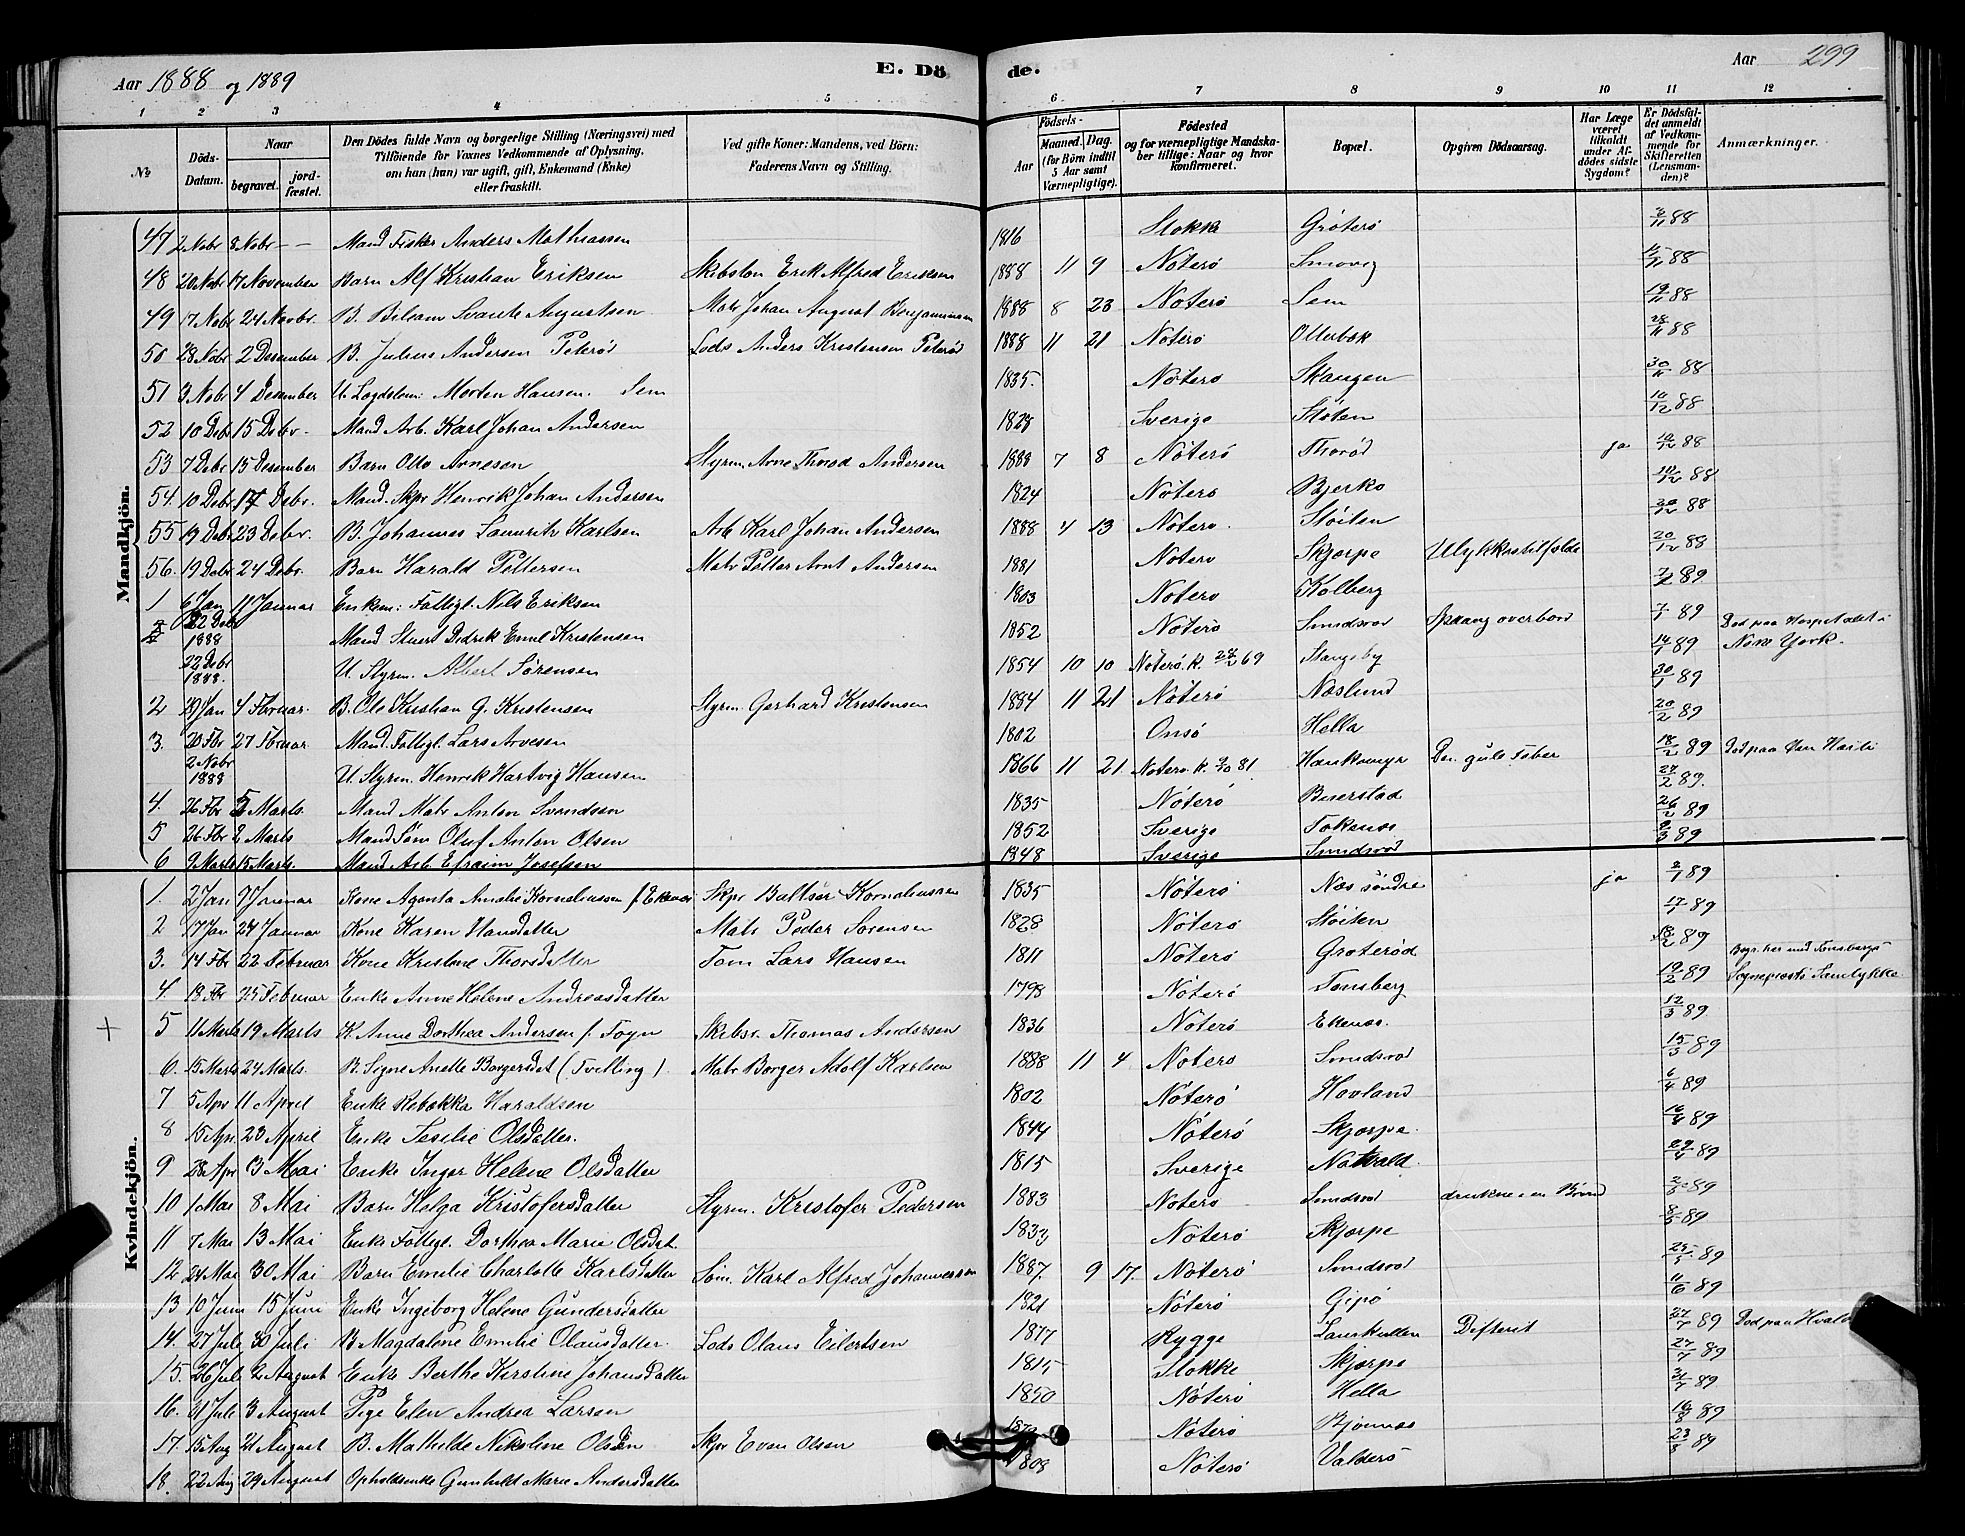 Aar 1888 og 1889 E. Dö de. Aar 299
1 2 3 4 5 6 7 8 9 10 11 12
№ Döds-Datum. Naar begravet. jord-fæstet. Den Dödes fulde Navn og borgerlige Stilling (Næringsvei) med Tilföiende for Voxnes Vedkommende af Oplysning, om han (hun) var ugift, gift, Enkemand (Enke) eller fraskilt. Ved gifte Koner: Mandens, ved Börn: Faderens Navn og Stilling. Födsels- Aar Maaned. Dag. (for Börn indtil 5 Aar samt Værnepligtige). Födested og for værnepligtige Mandska-ber tillige: Naar og hvor konfirmeret. Bopæl. Opgiven Dödsaarsag. Har Læge været tilkaldt under Af-dödes sidste Sygdom? Er Dödsfal-det anmeldt af Vedkom-mende for Skifteretten (Lensman-den)? Anmærkninger.
Mandkjön.
47 2 Nobr 8 Nobr - - Mand Fisker Anders Mathiassen 1816 Stokke Gröterö 88
48 20 Nobr 17 November Barn Alf Kristian Eriksen Erik Alfred Eriksen 1888 11 9 Nöterö Smovig 88
49 17 Nobr 24 Novbr. B. Svante Augustsen Matr Johan August Benjaminsen 1888 8 23 Nöterö Sem 19/11 88
50 28 Nobr 2 Desember B. Julius Andersen Peteröd Lods Anders Kristensen Peteröd 1888 11 21 Nöterö Ollebak 28/11 88
51 3 Nobr 4 Desember U. Morten Hansen. Sem 1835. Nöterö Skangen 30/11 88
52 10 Debr 15 Debr. Mand Arb. Karl Johan Andersen 1828 Sverige Stöten 10/12 88
53 7 Debr 15 Desember Barn Otto Arnesen Styrm. Arne Andersen 1888 7 8 Nöterö Thoröd ja 10/12 88
54. 10 Debr 17 Debr. Mand. Skpr Henrik Johan Andersen 1824 Nöterö Bjerkö 10/12 88
55 19 Debr 23 Debr. B. Johannes Lauritz Karlsen Arb Karl Johan Andersen 1888 4 13 Nöterö. Stöiten 20/12 88
56. 19 Debr 24 Debr. Barn Harald Pettersen Matr Petter Arnt Andersen 1881 Nöterö Skjerpe Ulykkestilfælde 20/12 88
1 6 Jan 11 Januar Enkem: Fattigl. Nils Eriksen 1803 Nöterö Kolberg 89
22 Debr 1888 Mand Stuert Didrik Emil Kristensen 1852 Nöterö Smidsröd Sprang overbord 7/1 89 Död paa Hospitalet i
22 Debr 1888. U. Styrm. Albert Sörensen 1854 10 10 Nöterö. K. 69 Stangeby 14/1 89 New York.
2 29 Jan 4 Februar. B. Ole Kristian G. Kristensen Styrm. Gerhard Kristensen 1884 11 21 Nöterö Neslund 30/1 89
3. 20 Fbr 27 Februar Mand. Fattigl. Lars Arvesen 1802 Onsö Hella 20/2 89
2 Nobr 1888 U. Styrm. Henrik Hartvig Hansen 1866 11 21 Nöterö. K. 81 Den gule Feber 18/2 89 Död paa
4. 26 Fbr 5 Marts Mand Matr Anton Svendsen 1835 Nöterö Buerstad 27/2 89.
5 26 Fbr 2 Marts Mand Söm Oluf Anton Olsen 1852 Sverige Tokenes 26/2 89
6 9 Marts 15 Marts. Mand. Arb. Efraim Josefsen 1848 Sverige Smidsröd 9/3 89
Kvindekjön.
1. 2 Jan 7 Januar Kone Agenta Amalie Korneliussen f. Ekenes Skpr Baltser Korneliussen 1835 Nöterö Næs söndre ja 2/1 89
2 17 Jan 24 Januar Kone Karen Hansdatter Matr Peder Sörensen 1828 Nöterö Stöiten 17/1 89
3. 14 Fbr 22 Februar Kone Kristine Thorsdatter Tom Lars Hansen 1811 Nöterö Groteröd 18/2 89 Begr. her med Tönsbergs
4. 18 Fbr 25 Februar Enke Anne Helene Andreasdatter 1798 Nöterö Tönsberg 19/2 89 Sogneprests Samtykke
+ 5 11 Marts 19 Marts K. Anne Dorthea Andersen f. Föyn Skibsr. Thomas Andersen 1836 Nöterö Ekenes. 12/3 89
6. 15 Marts 24 Marts. B. Signe Anette Borgersdat (Tvilling). Matr Borger Adolf Karlsen 1888 11 4 Nöterö Smidsröd 15/3 89
7 5 Apr 11 April Enke Rebekka Haraldsen 1802 Nöterö Hovland 6/4 89
8 15 Apr. 23 April Enke Olsdatter. 1844 Nöterö Skjerpe. 16/4 89
9 28 Apr 3 Mai Enke Inger Helene Olsdatter 1815 Sverige Nötvald. 29/4 89
10 1 Mai 8 Mai Barn Helga Kristofersdatter Styrm. Kristofer Pedersen 1883 Nöterö Smidsröd druknet i en Brönd 89
11 7 Mai 13 Mai Enke Fattigl. Dorthea Marie Olsdat. 1833 Nöterö Skjerpe 8/5 89
12 24 Mai 30 Mai Barn Emilie Charlotte Karlsdatter Söm. Karl Alfred Johannessen 1887. 9 17. Nöterö Smidsröd 25/5 89
13 10 Juni 15 Juni Enke Ingeborg Helene Gundersdatter 1821 Nöterö Gipö 11/6 89
14. 27 Juli 30 Juli B. Magdalene Emilie Olausdatter. Lods Olaus Eilertsen 1877 Rygge Lauskullen Difterit 27/7 89 Död paa Hvaler
15. 26 Juli 2 August Enke Berthe Kirstine Johansdatter 1815 Stokke Skjerpe 27/7 89
16. 31 Juli 3 August Pige Elen Andrea Larsen 1850 Nöterö Hella 31/7 89
17. 15 Aug 21 August B. Mathilde Nikoline Olsen Skpr Even Olsen Nöterö Bjönnes 16/8 89
18. 22 Aug 29 August Opholdsenke Gunhild Marie Andersdatter 1808 Nöterö Valderö 23/8 89